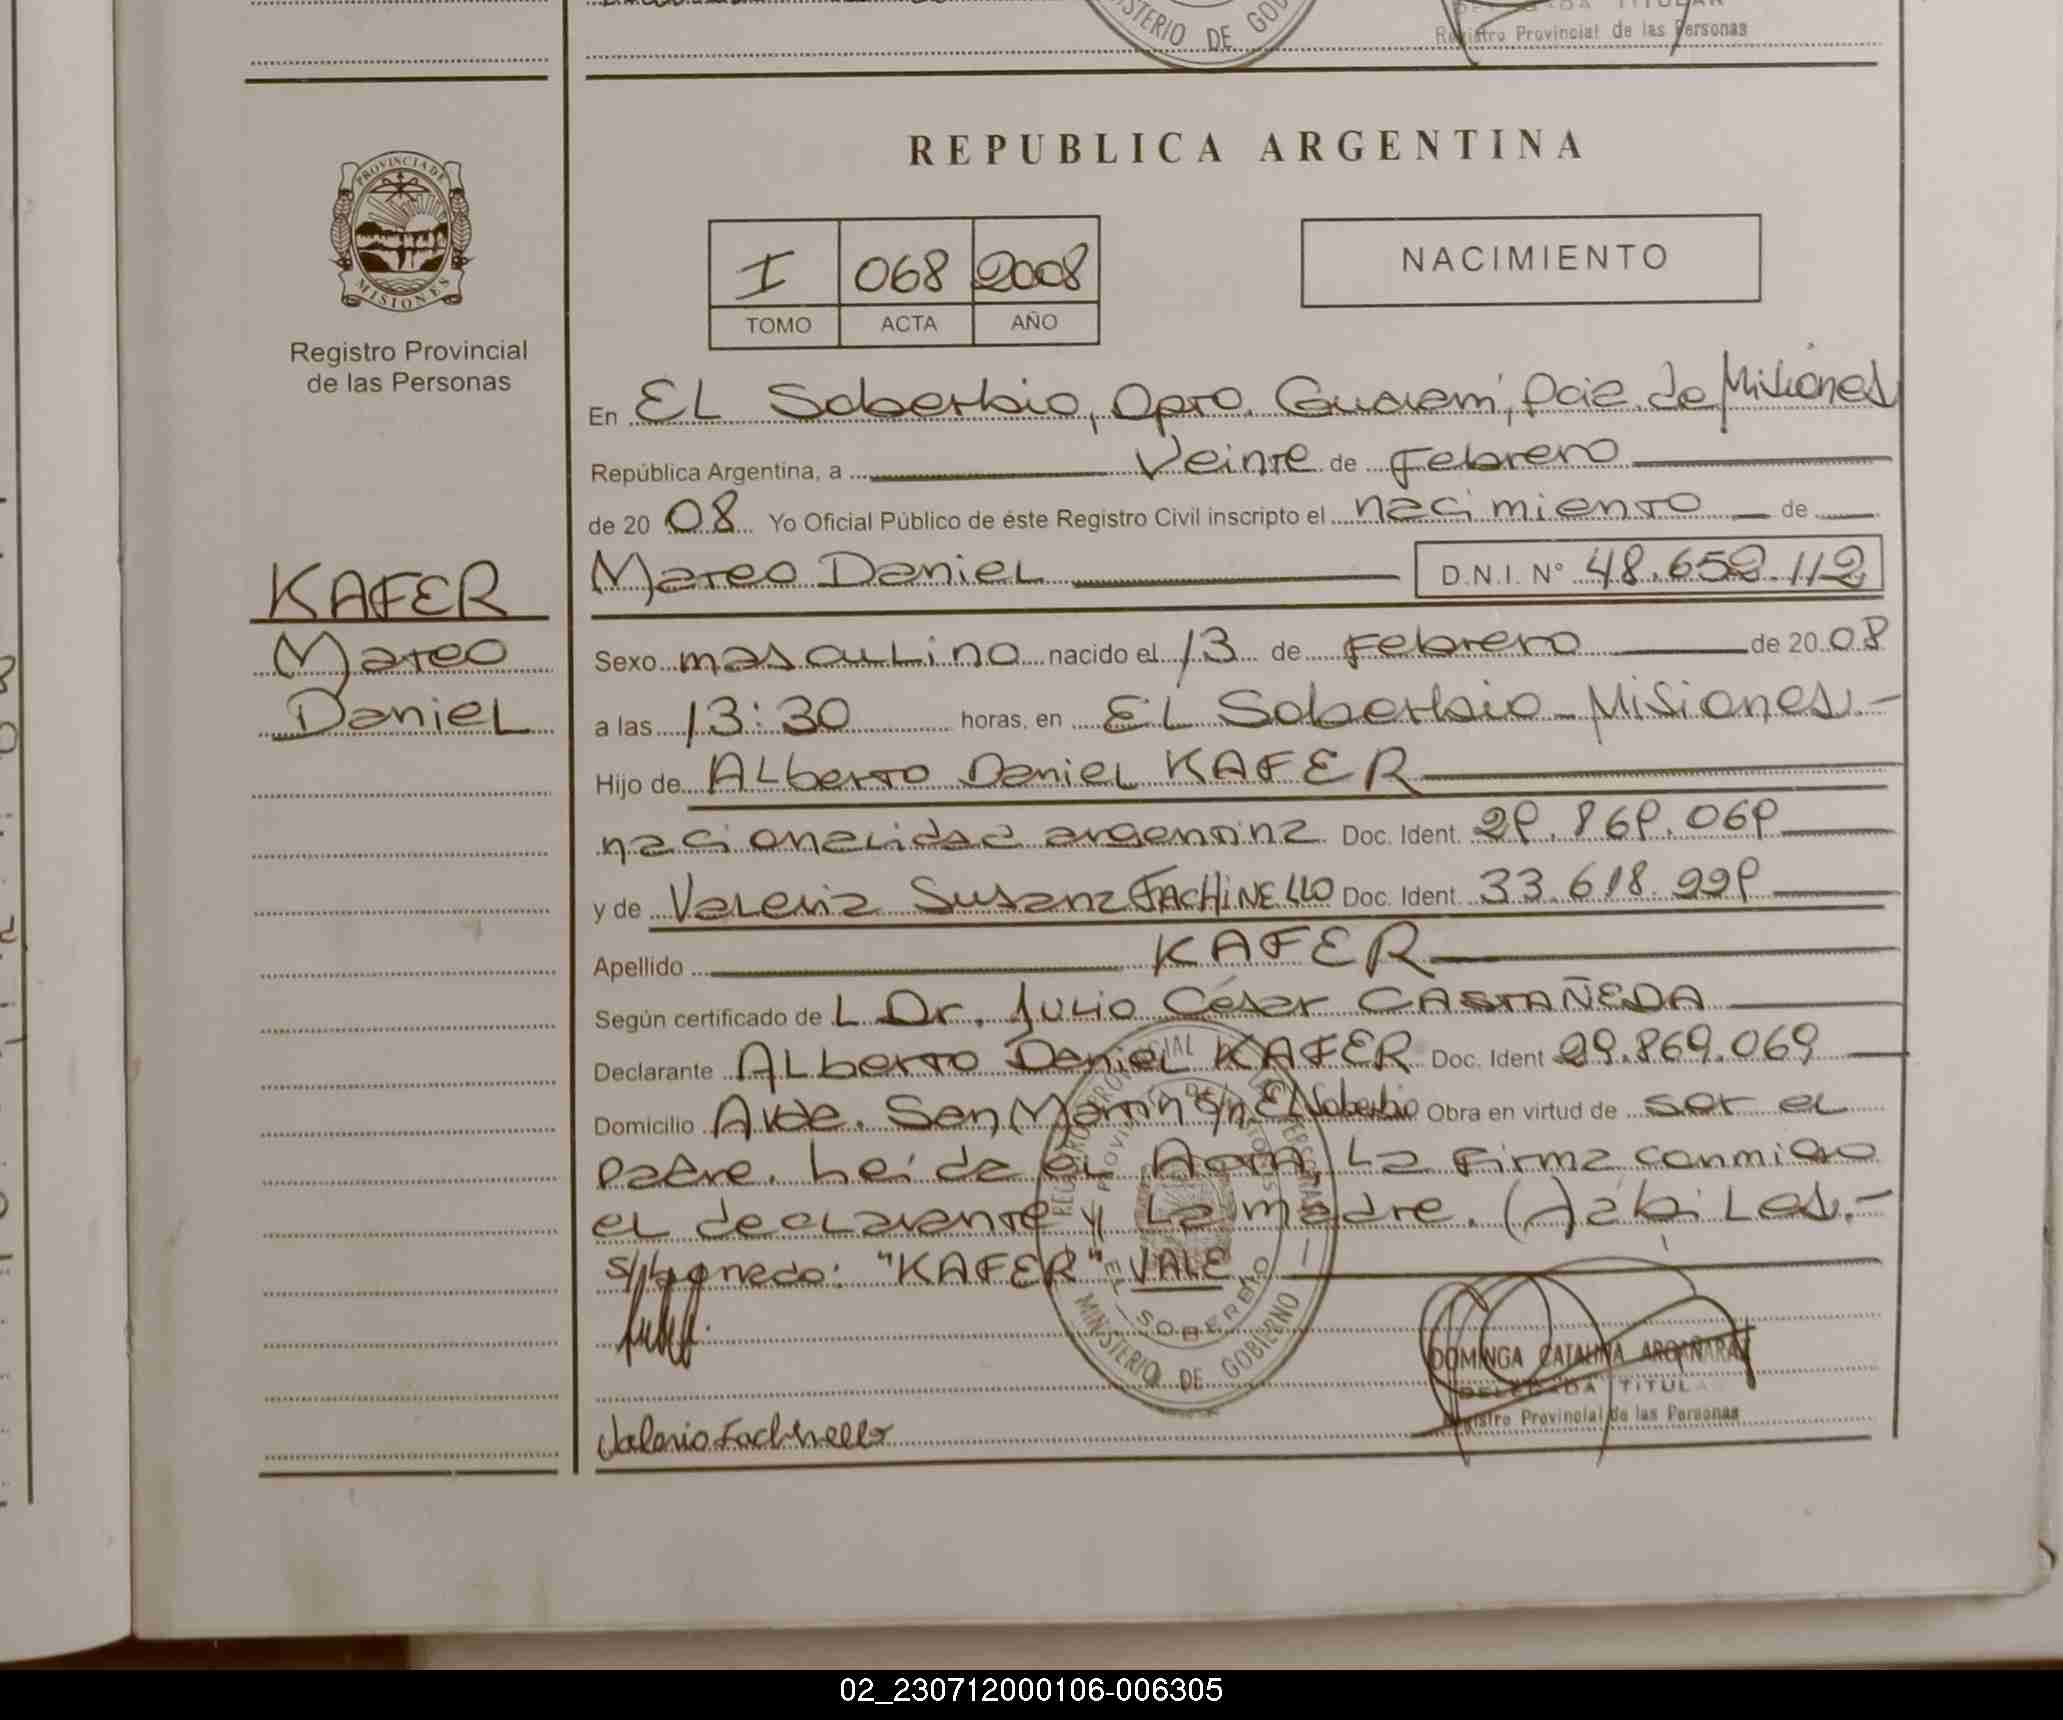 MINISTERIO DE GOB
DELEGADA TITULAR
Registro Provincial de las Personas
REPUBLICA ARGENTINA
PROVINCIA DE
MISIONES
Registro Provincial
de las Personas
I 068 2008
TOMO ACTA AÑO
NACIMIENTO
En EL Soberbio, Dpto. Guaraní, Pcia. de Misiones
República Argentina, a Veinte de Febrero
de 20 08 Yo Oficial Público de éste Registro Civil inscripto el nacimiento de
Mateo Daniel D.N.I. N° 48.652.112
KAFER
Mateo
Daniel
Sexo masculino nacido el 13 de Febrero de 20 08
a las 13:30 horas, en EL Soberbio - Misiones.-
Hijo de ALberto Daniel KAFER
nacionalidad argentina Doc. Ident. 29.869.069
y de Valeria Susana FACHINELLO Doc. Ident. 33.618.999
Apellido KAFER
Según certificado de L Dr. Julio César CASTAÑEDA
Declarante ALberto Daniel KAFER Doc. Ident 29.869.069
Domicilio Avda. San Martin s/n El Soberbio Obra en virtud de ser el
padre. Leida el Acta, La Firma conmigo
el declarante y La madre. (Hábiles.-
s/borrado: "KAFER" VALE
EL SOBERBIO
MINISTERIO DE GOBIERNO
DOMINGA CATALINA ARGAÑARAZ
DELEGADA TITULA
Registro Provincial de las Personas
Valeria Fachinello
02_230712000106-006305